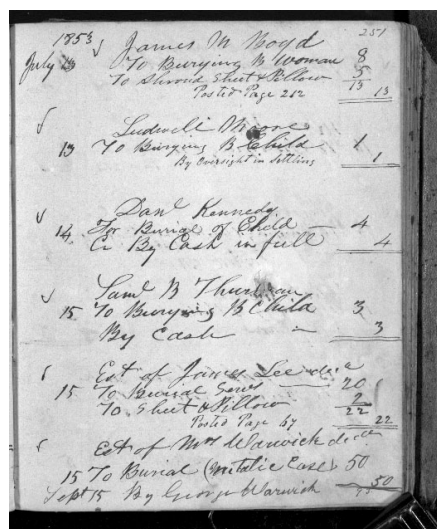 251
1853 James M Boyd
July 13 To Burying B Woman 8
To Shroud Sheet & Pillow 5
13
Posted Page 212 13
Ludwell Moore
13 To Burying B Child 1
By Oversight in Settling 1
Danl Kennedy
14 For Burial of Child 4
Cr By Cash in full 4
Saml B Thurman
15 To Burying B Child 3
By Cash 3
Est of James Lee decd
15 To Burial Serv 20
To Sheet & Pillow 2
22
Posted Page 47 22
Est of Mrs Warwick decd
15 To Burial (Metalic Case) 50
Sept 15 By George Warwick 50